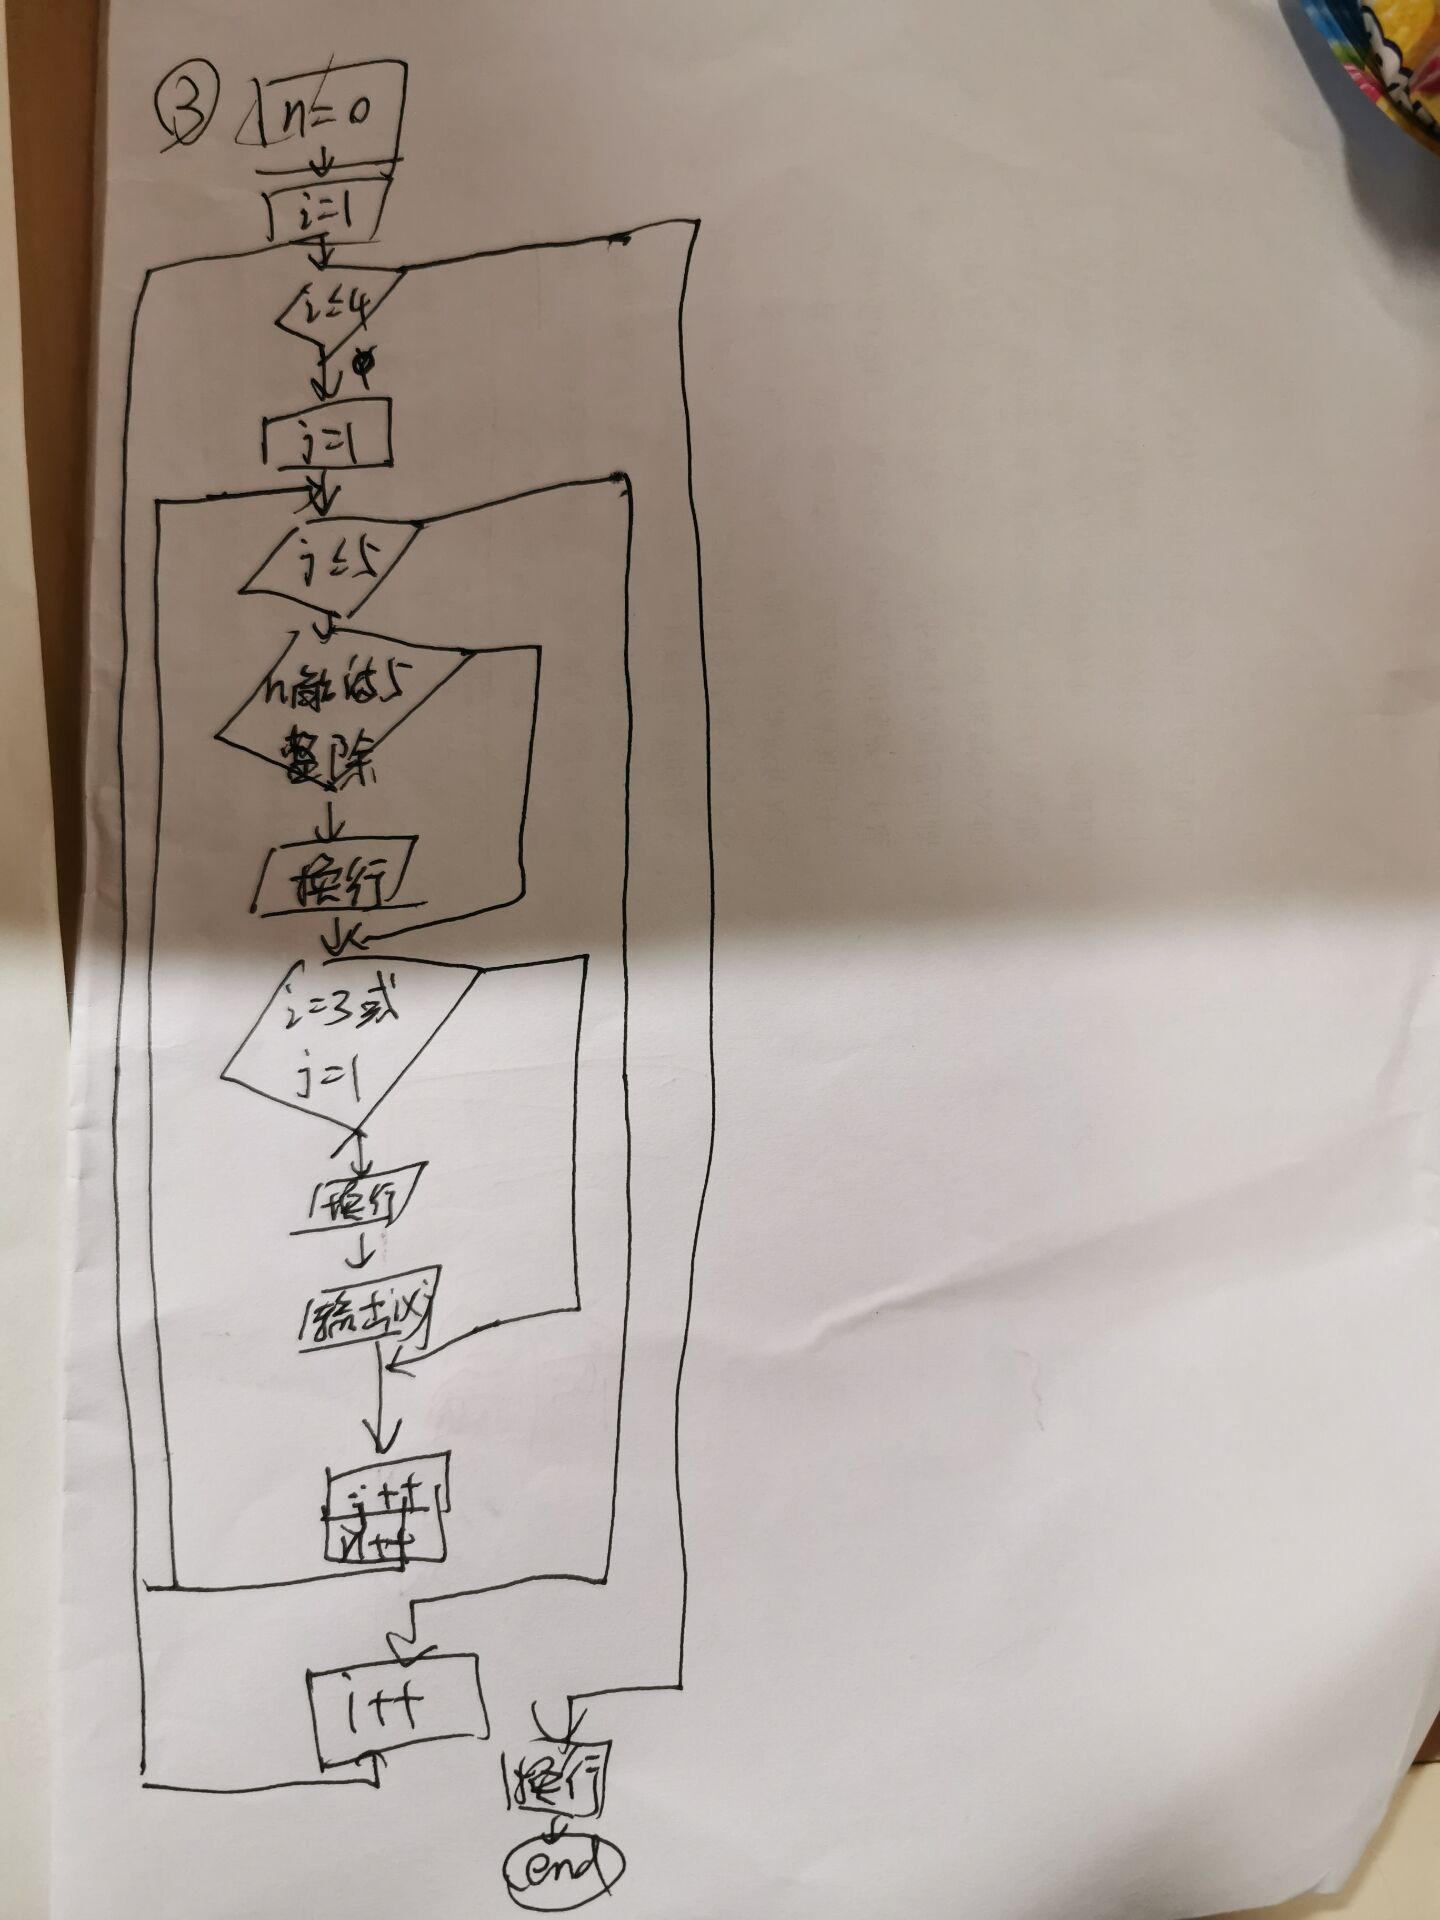 ③
n=0
i=1
i≤4
j=1
j≤5
n能被5
整除
换行
i=3或
j=1
换行
输出i×j
j++
n++
i++
换行
end